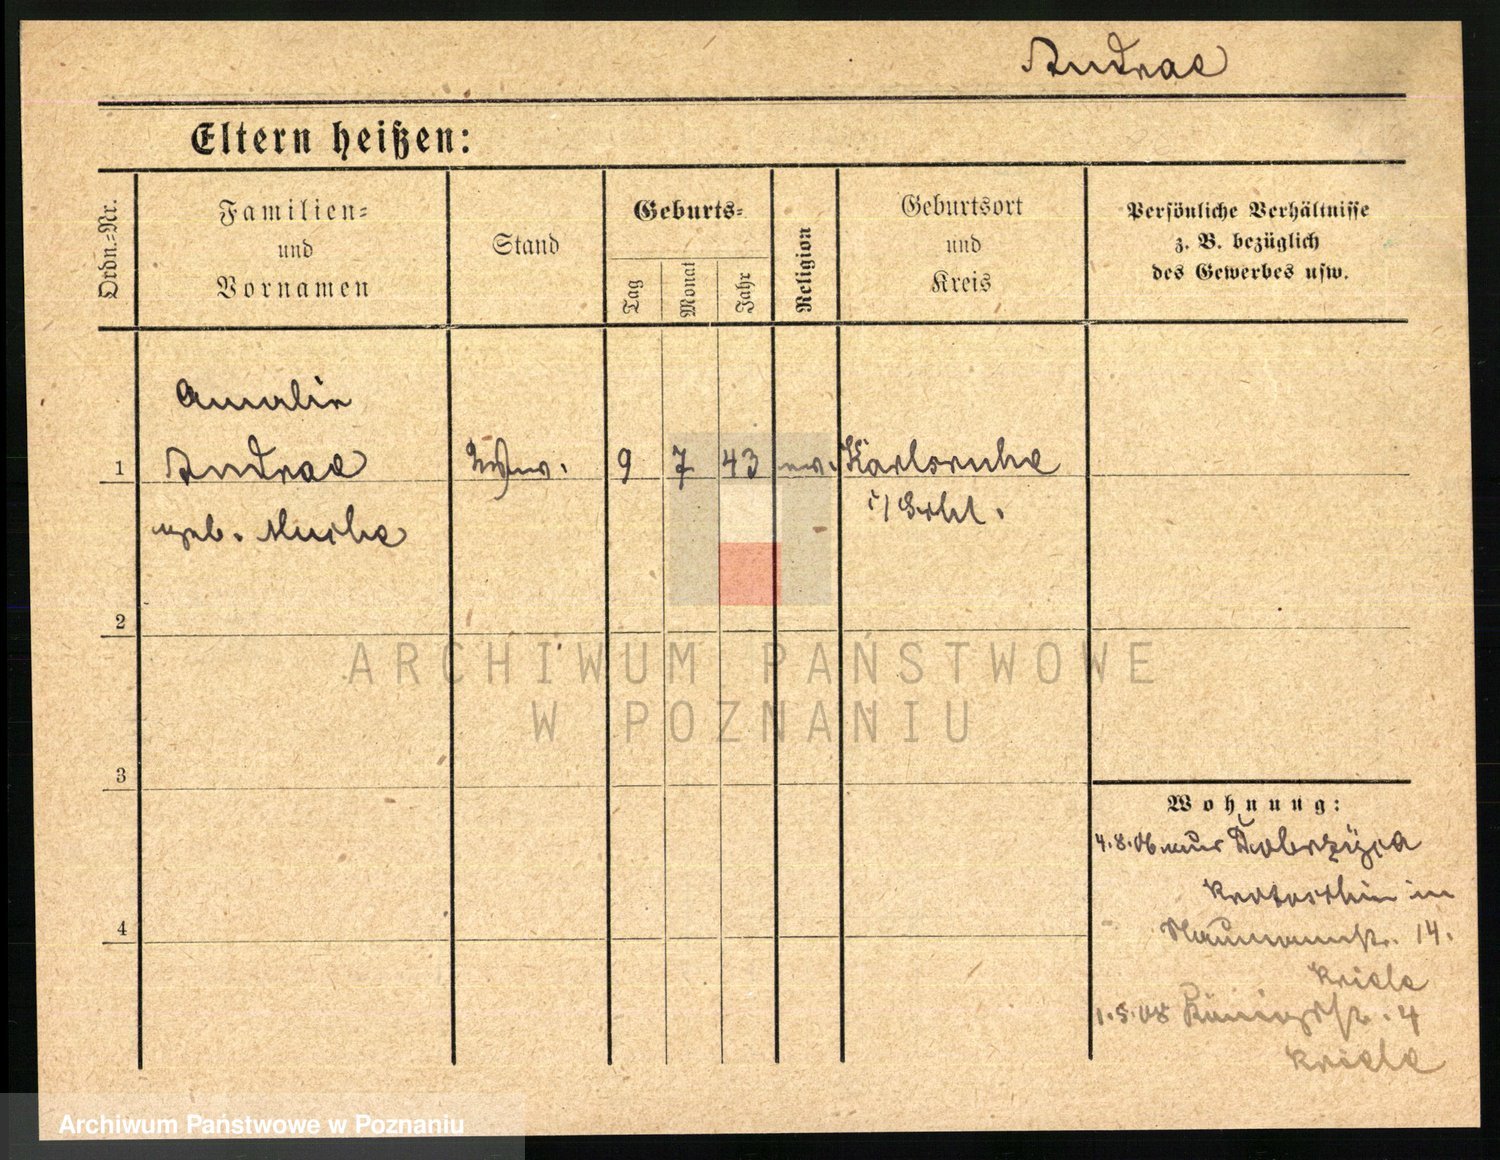 Andrae
Eltern heißen:
Ordn.-Nr.
Familien-
und
Vornamen
Stand
Geburts-
Tag
Monat
Jahr
Religion
Geburtsort
und
Kreis
Persönliche Verhältnisse
z. B. bezüglich
des Gewerbes usw.
Amalie
1 Andrae Wwe. 9 7 43 ev. Karlsruhe
geb. Muche i/Schl.
2
3
4
Wohnung:
4.8.06 aus Dobrzyca
Krotoschin in
Naumannstr. 14.
1.5.08 Königstr. 4
ARCHIWUM PAŃSTWOWE
W POZNANIU
Archiwum Państwowe w Poznaniu